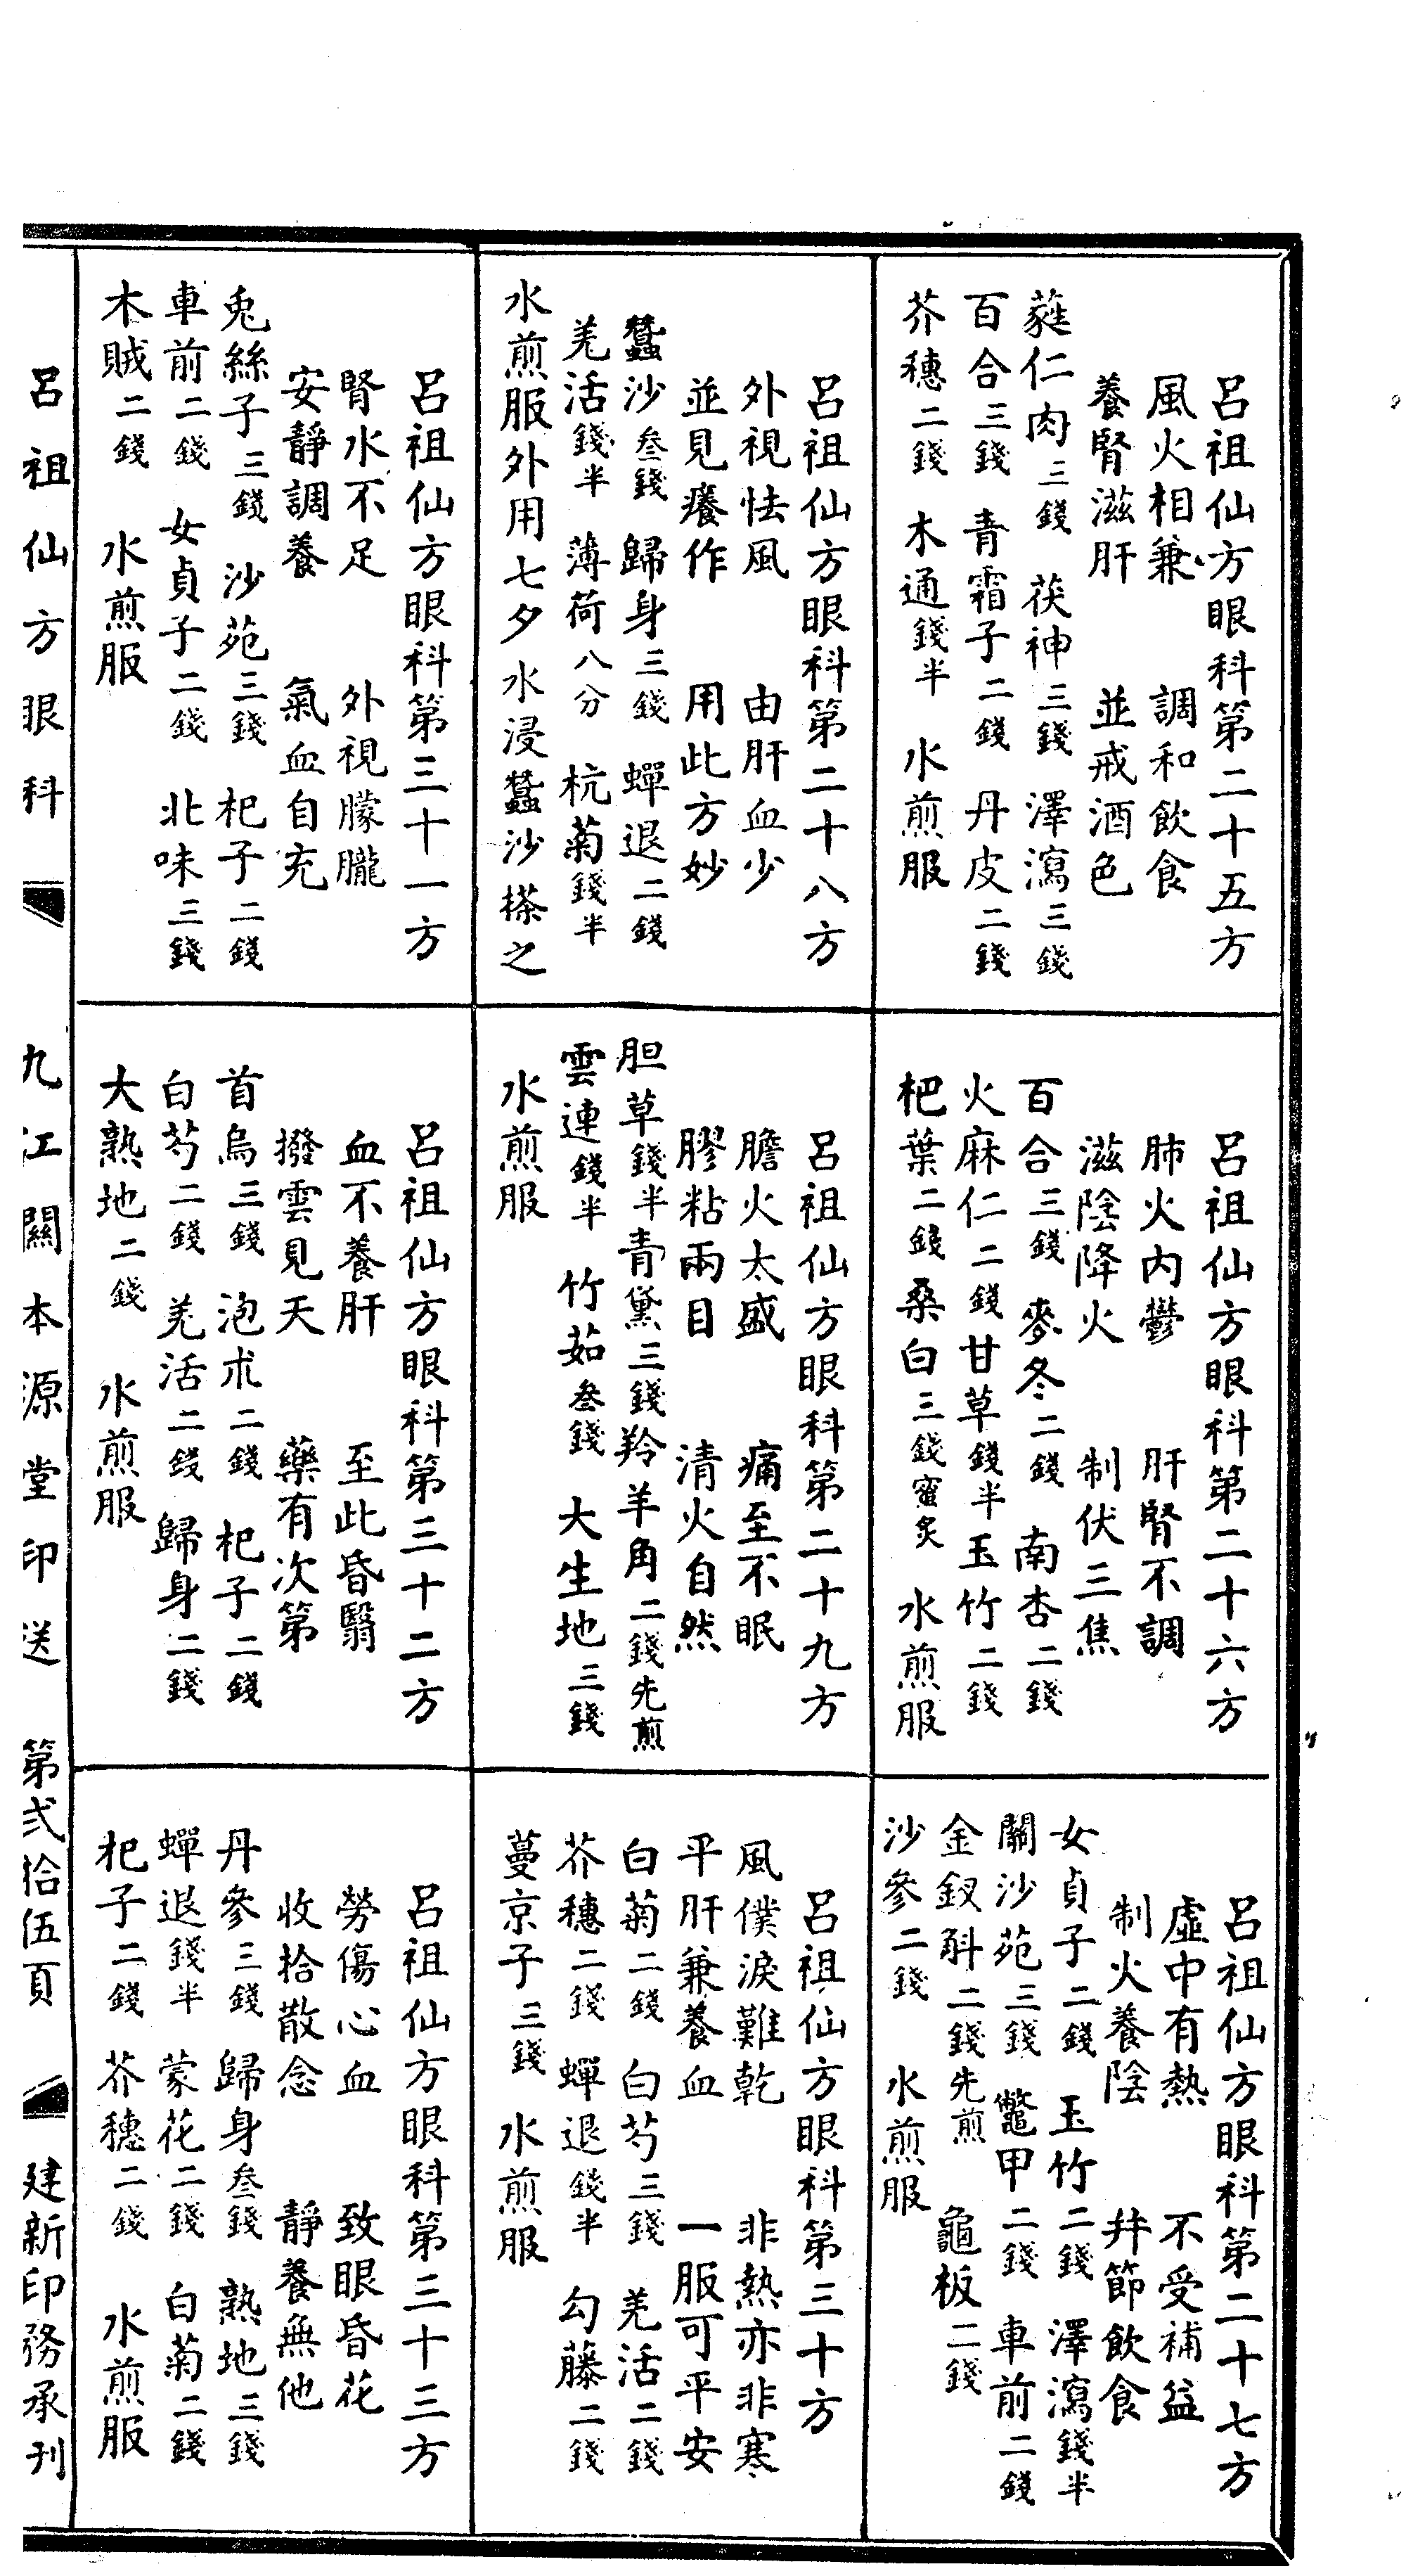 呂祖仙方眼科第二十五方
風火相兼　調和飲食
養腎滋肝　並戒酒色
蕤仁肉三錢　茯神三錢　澤瀉三錢
百合三錢　青霜子二錢　丹皮二錢
芥穗二錢　木通錢半　水煎服
呂祖仙方眼科第二十六方
肺火內鬱　肝腎不調
滋陰降火　制伏三焦
百合三錢　麥冬二錢　南杏二錢
火麻仁二錢　甘草錢半　玉竹二錢
杷葉二錢　桑白三錢蜜炙　水煎服
呂祖仙方眼科第二十七方
虛中有熱　不受補益
制火養陰　并節飲食
女貞子二錢　玉竹二錢　澤瀉錢半
關沙苑三錢　鼈甲二錢　車前二錢
金釵斛二錢先煎　龜板二錢
沙參二錢　水煎服
呂祖仙方眼科第二十八方
外視怯風　由肝血少
並見癢作　用此方妙
蠶沙叁錢　歸身三錢　蟬退二錢
羌活錢半　薄荷八分　杭菊錢半
水煎服外用七夕水浸蠶沙搽之
呂祖仙方眼科第二十九方
膽火太盛　痛至不眠
膠粘兩目　清火自然
胆草錢半　青黛三錢　羚羊角二錢先煎
雲連錢半　竹茹叁錢　大生地三錢
水煎服
呂祖仙方眼科第三十方
風僕淚難乾　非熱亦非寒
平肝兼養血　一服可平安
白菊二錢　白芍三錢　羌活二錢
芥穗二錢　蟬退錢半　勾藤二錢
蔓京子三錢　水煎服
呂祖仙方眼科第三十一方
腎水不足　外視朦朧
安靜調養　氣血自充
兎絲子三錢　沙苑三錢　杞子二錢
車前二錢　女貞子二錢　北味三錢
木賊二錢　水煎服
呂祖仙方眼科第三十二方
血不養肝　至此昏翳
撥雲見天　藥有次第
首烏三錢　泡朮二錢　杞子二錢
白芍二錢　羌活二錢　歸身二錢
大熟地二錢　水煎服
呂祖仙方眼科第三十三方
勞傷心血　致眼昏花
收拾散念　靜養無他
丹參三錢　歸身叁錢　熟地三錢
蟬退錢半　蒙花二錢　白菊二錢
杞子二錢　芥穗二錢　水煎服
呂祖仙方眼科　九江關本源堂印送　第弍拾伍頁　建新印務承刊